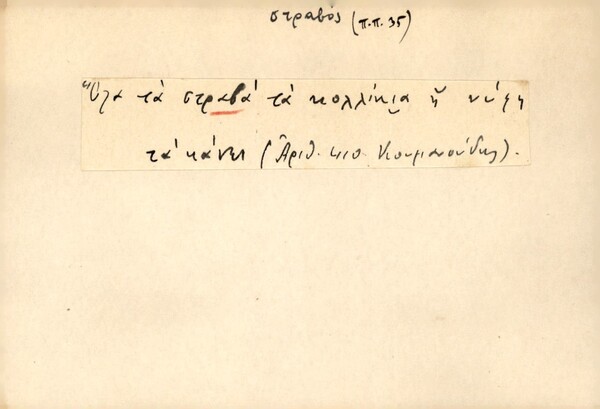 στραβός (π.π. 35)
Ὅλα τὰ στραβὰ τὰ κολλίκια ἡ νύφη
τά κάνει (Ἀριθ. 410 Κουμανούδης).